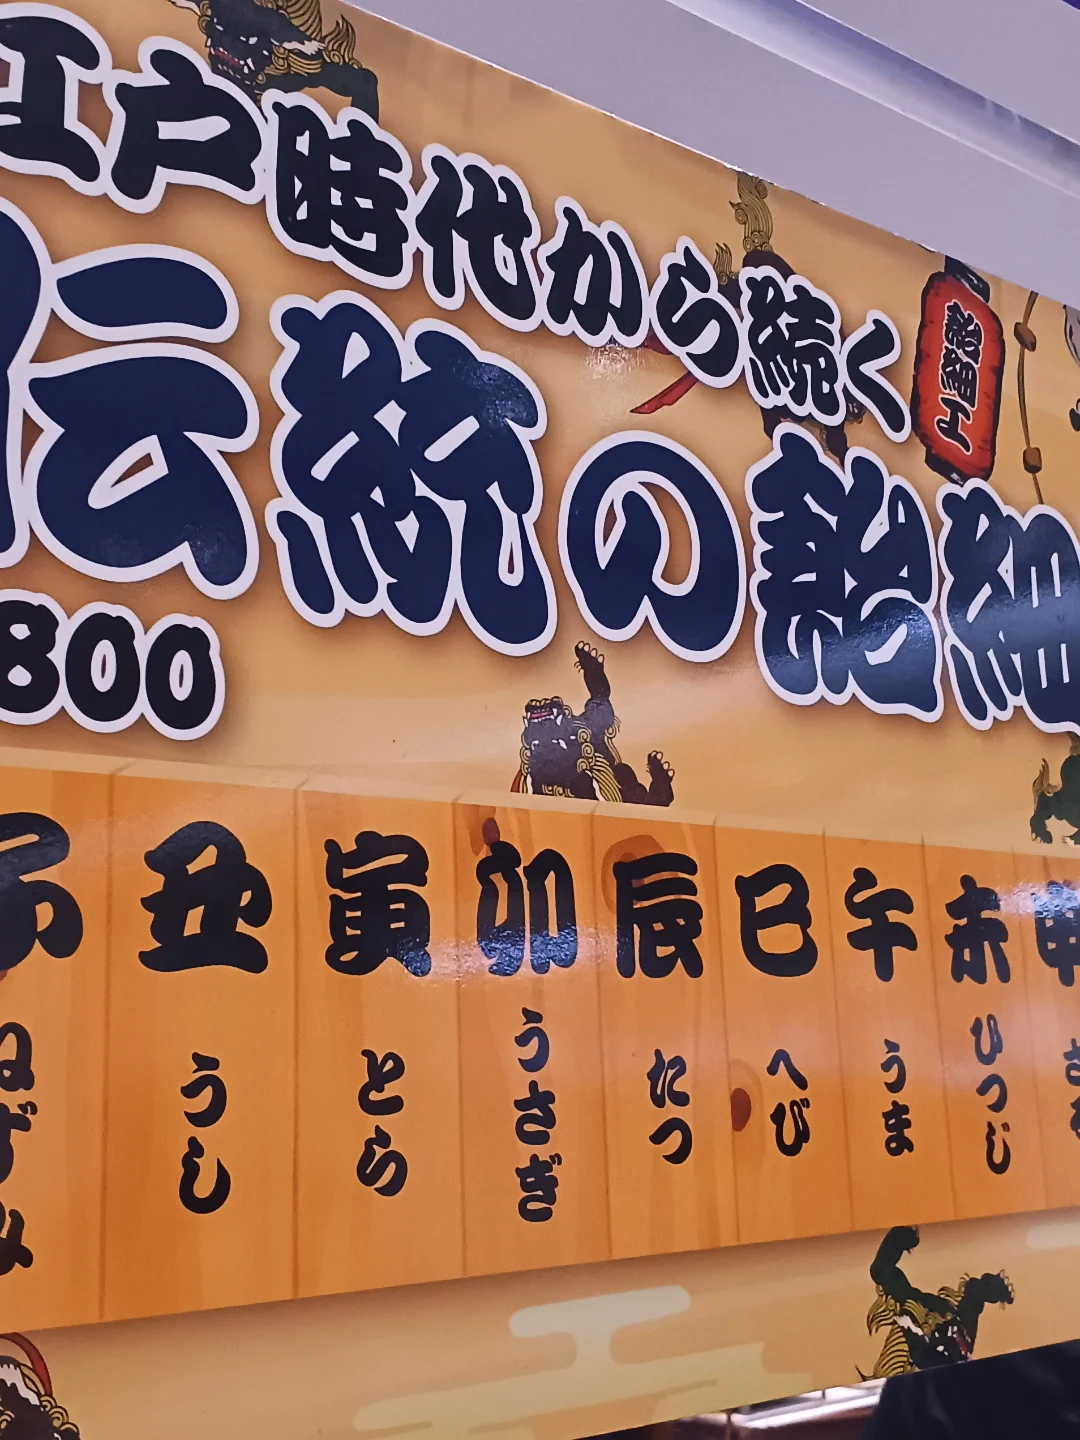 江戸時代から続く
伝統の飴細
飴細工
800
子 丑 寅 卯 辰 巳 午 未 申
ねずみ うし とら うさぎ たつ へび うま ひつじ さる